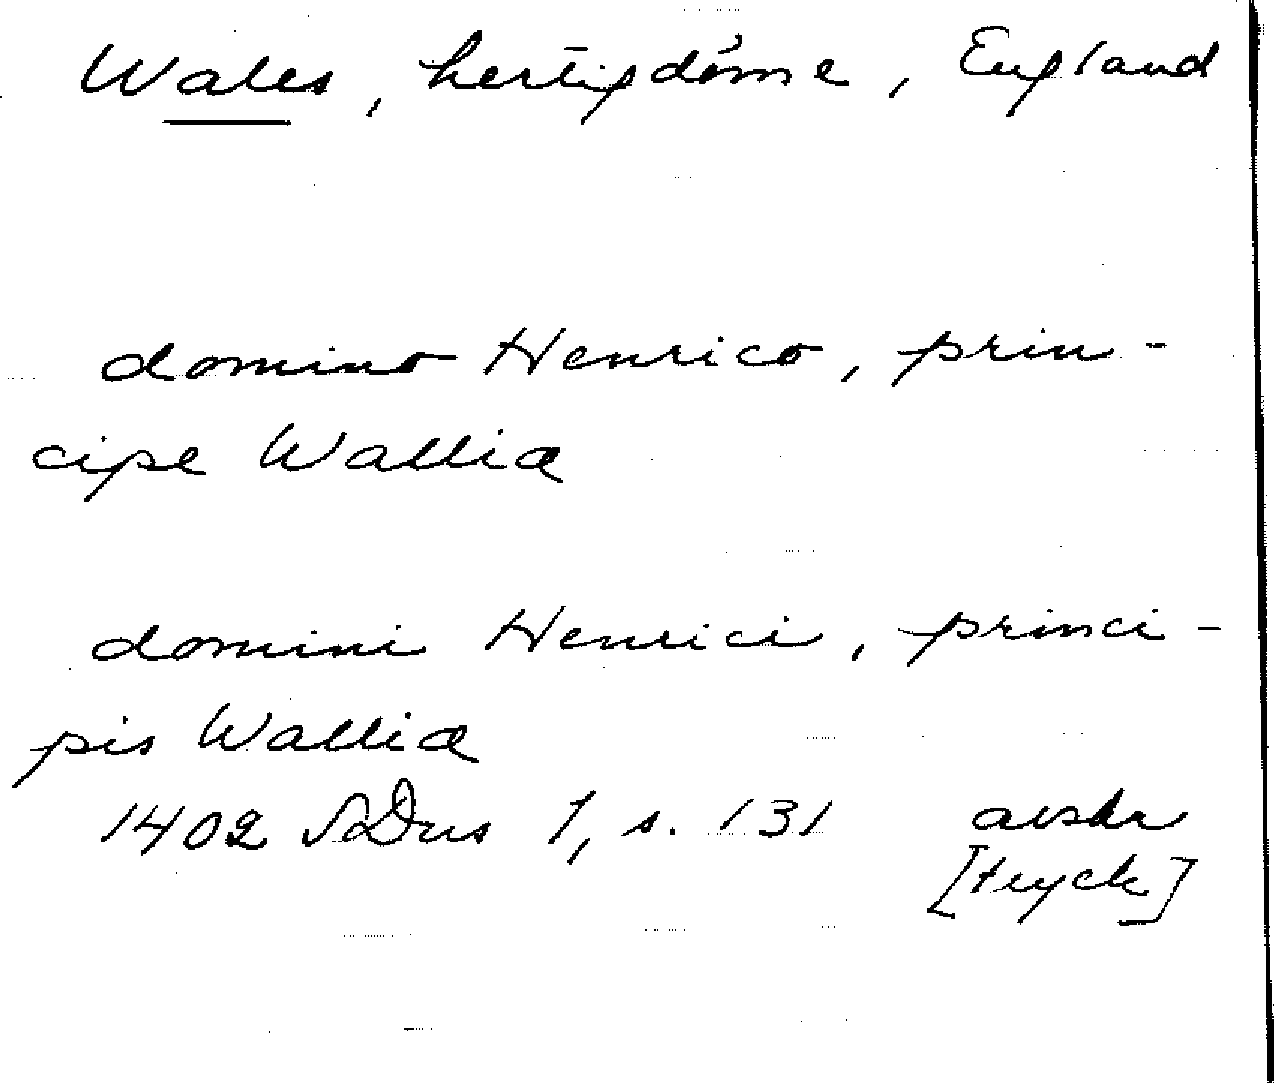 Wales, hertigdöme, England
domino Henrico, prin-
cipe Walliæ
domini Henrici, princi-
pis Walliæ
1402 SDns 1, s. 131 avskr
[tryck]